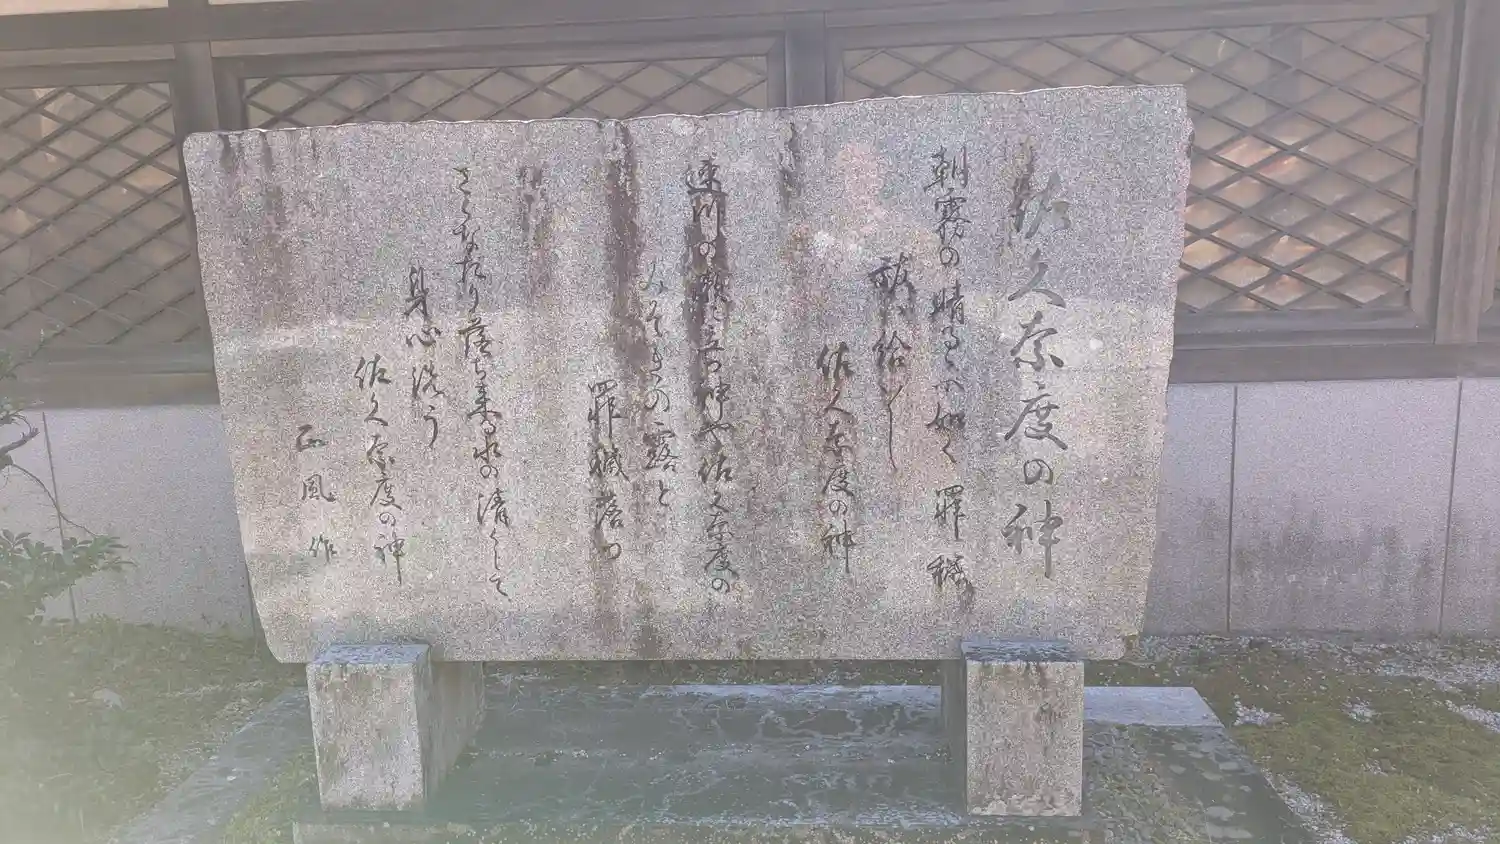 佐久奈度の神
朝霧の晴るゝの如く罪穢
祓ひ給へし
佐久奈度の神
速川の瀬に立つ神や佐久奈度の
みそぎの露と
罪穢落つ
さくなだり落ち来る水の清くして
身心洗う
佐久奈度の神
正風 作